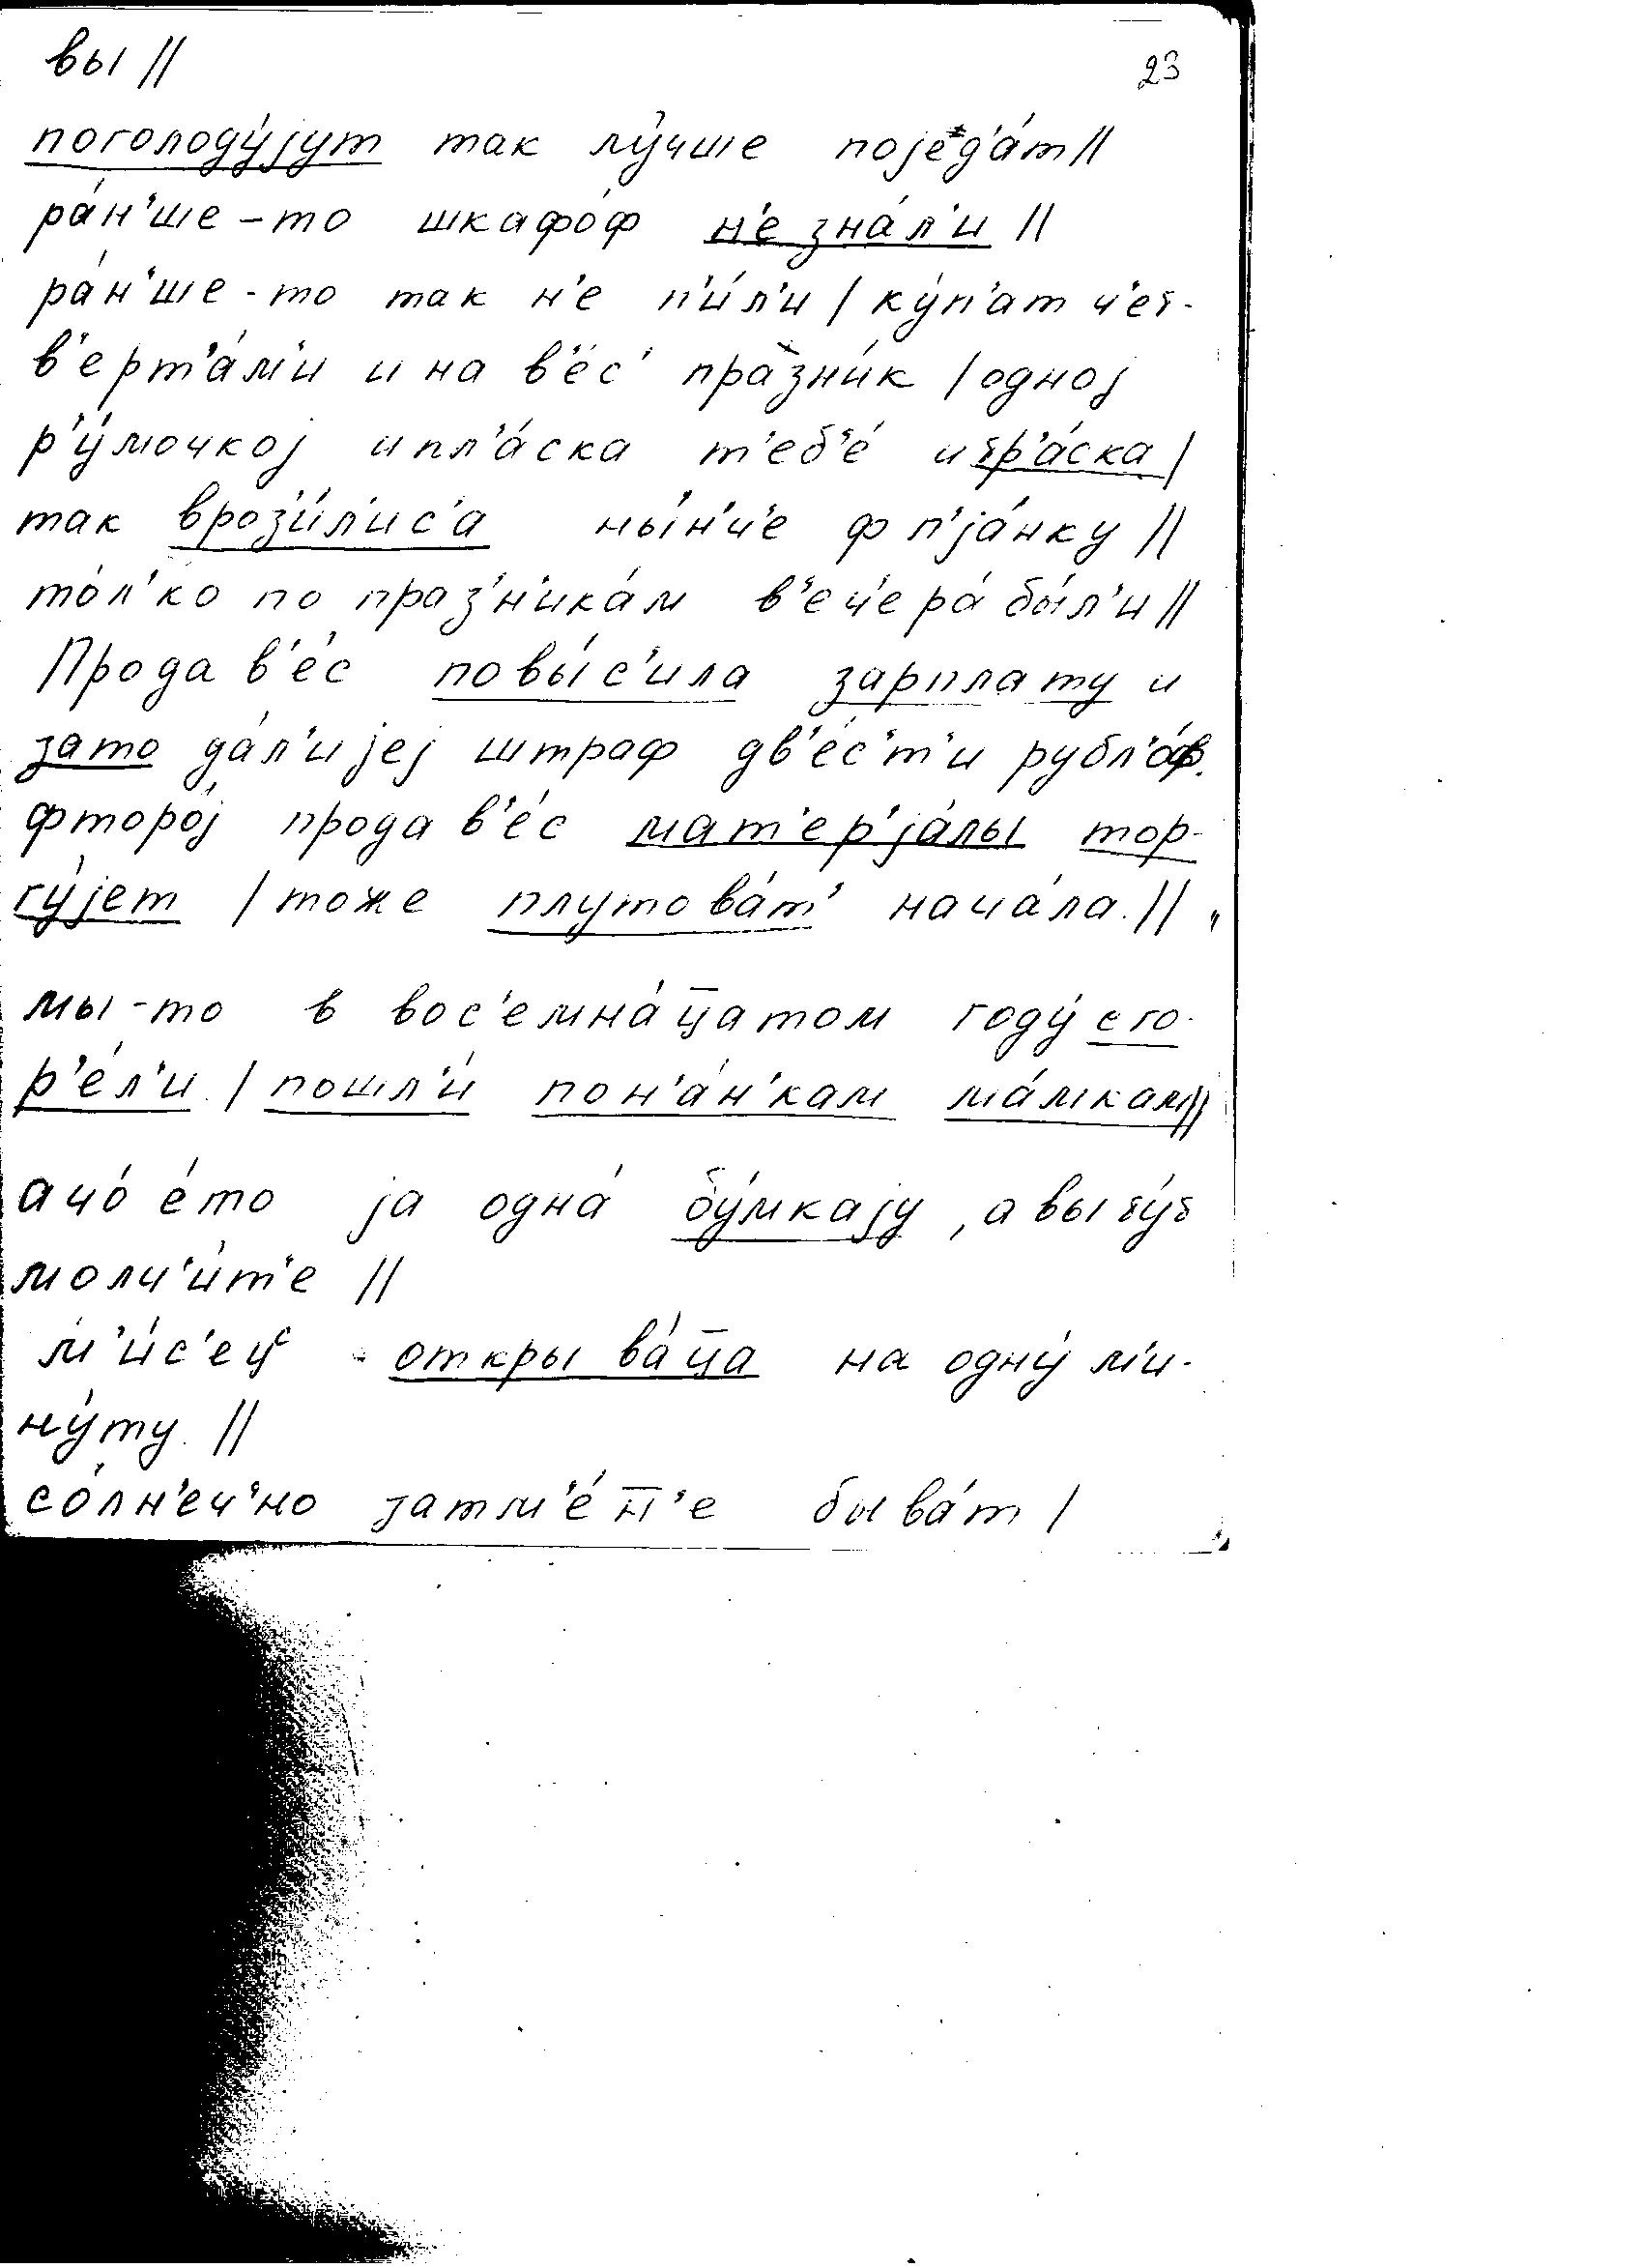 вы //
23
поголоду́јут так лу́чше поједа́т //
ра́н'ше-то шкафо́ф н'е зна́л'и //
ра́н'ше-то так н'е п'и́л'и / ку́п'ат ч'ет-
в'ерт'а́м'и и на в'е́с' празни́к / одној
р'у́мочкој и пл'а́ска т'еб'е́ и тр'а́ска /
так вроз'и́л'ис'а ны́н'ч'е ф п'ја́нку //
то́л'ко по праз'н'ика́м в'еч'ера́ бы́л'и //
Продав'е́с повы́с'ила зарплату и
зато да́л'и јеј штраф дв'е́с'т'и рубл'о́ф.
фторо́ј продав'е́с мат'ер'ја́лы тор-
гу́јет / тоже плутова́т' нача́ла. //
мы-то в вос'емна́ц̅атом году́ сго-
р'е́л'и / пошл'и́ по н'а́н'кам ма́мкам //
а чо́ е́то ја одна́ бу́мкају, а вы ту́т
молч'и́т'е //
м'и́с'ец'с открыва́ц̅а на одну́ м'и-
ну́ту. //
со́лн'еч'но затм'е́н̅'е быва́т /